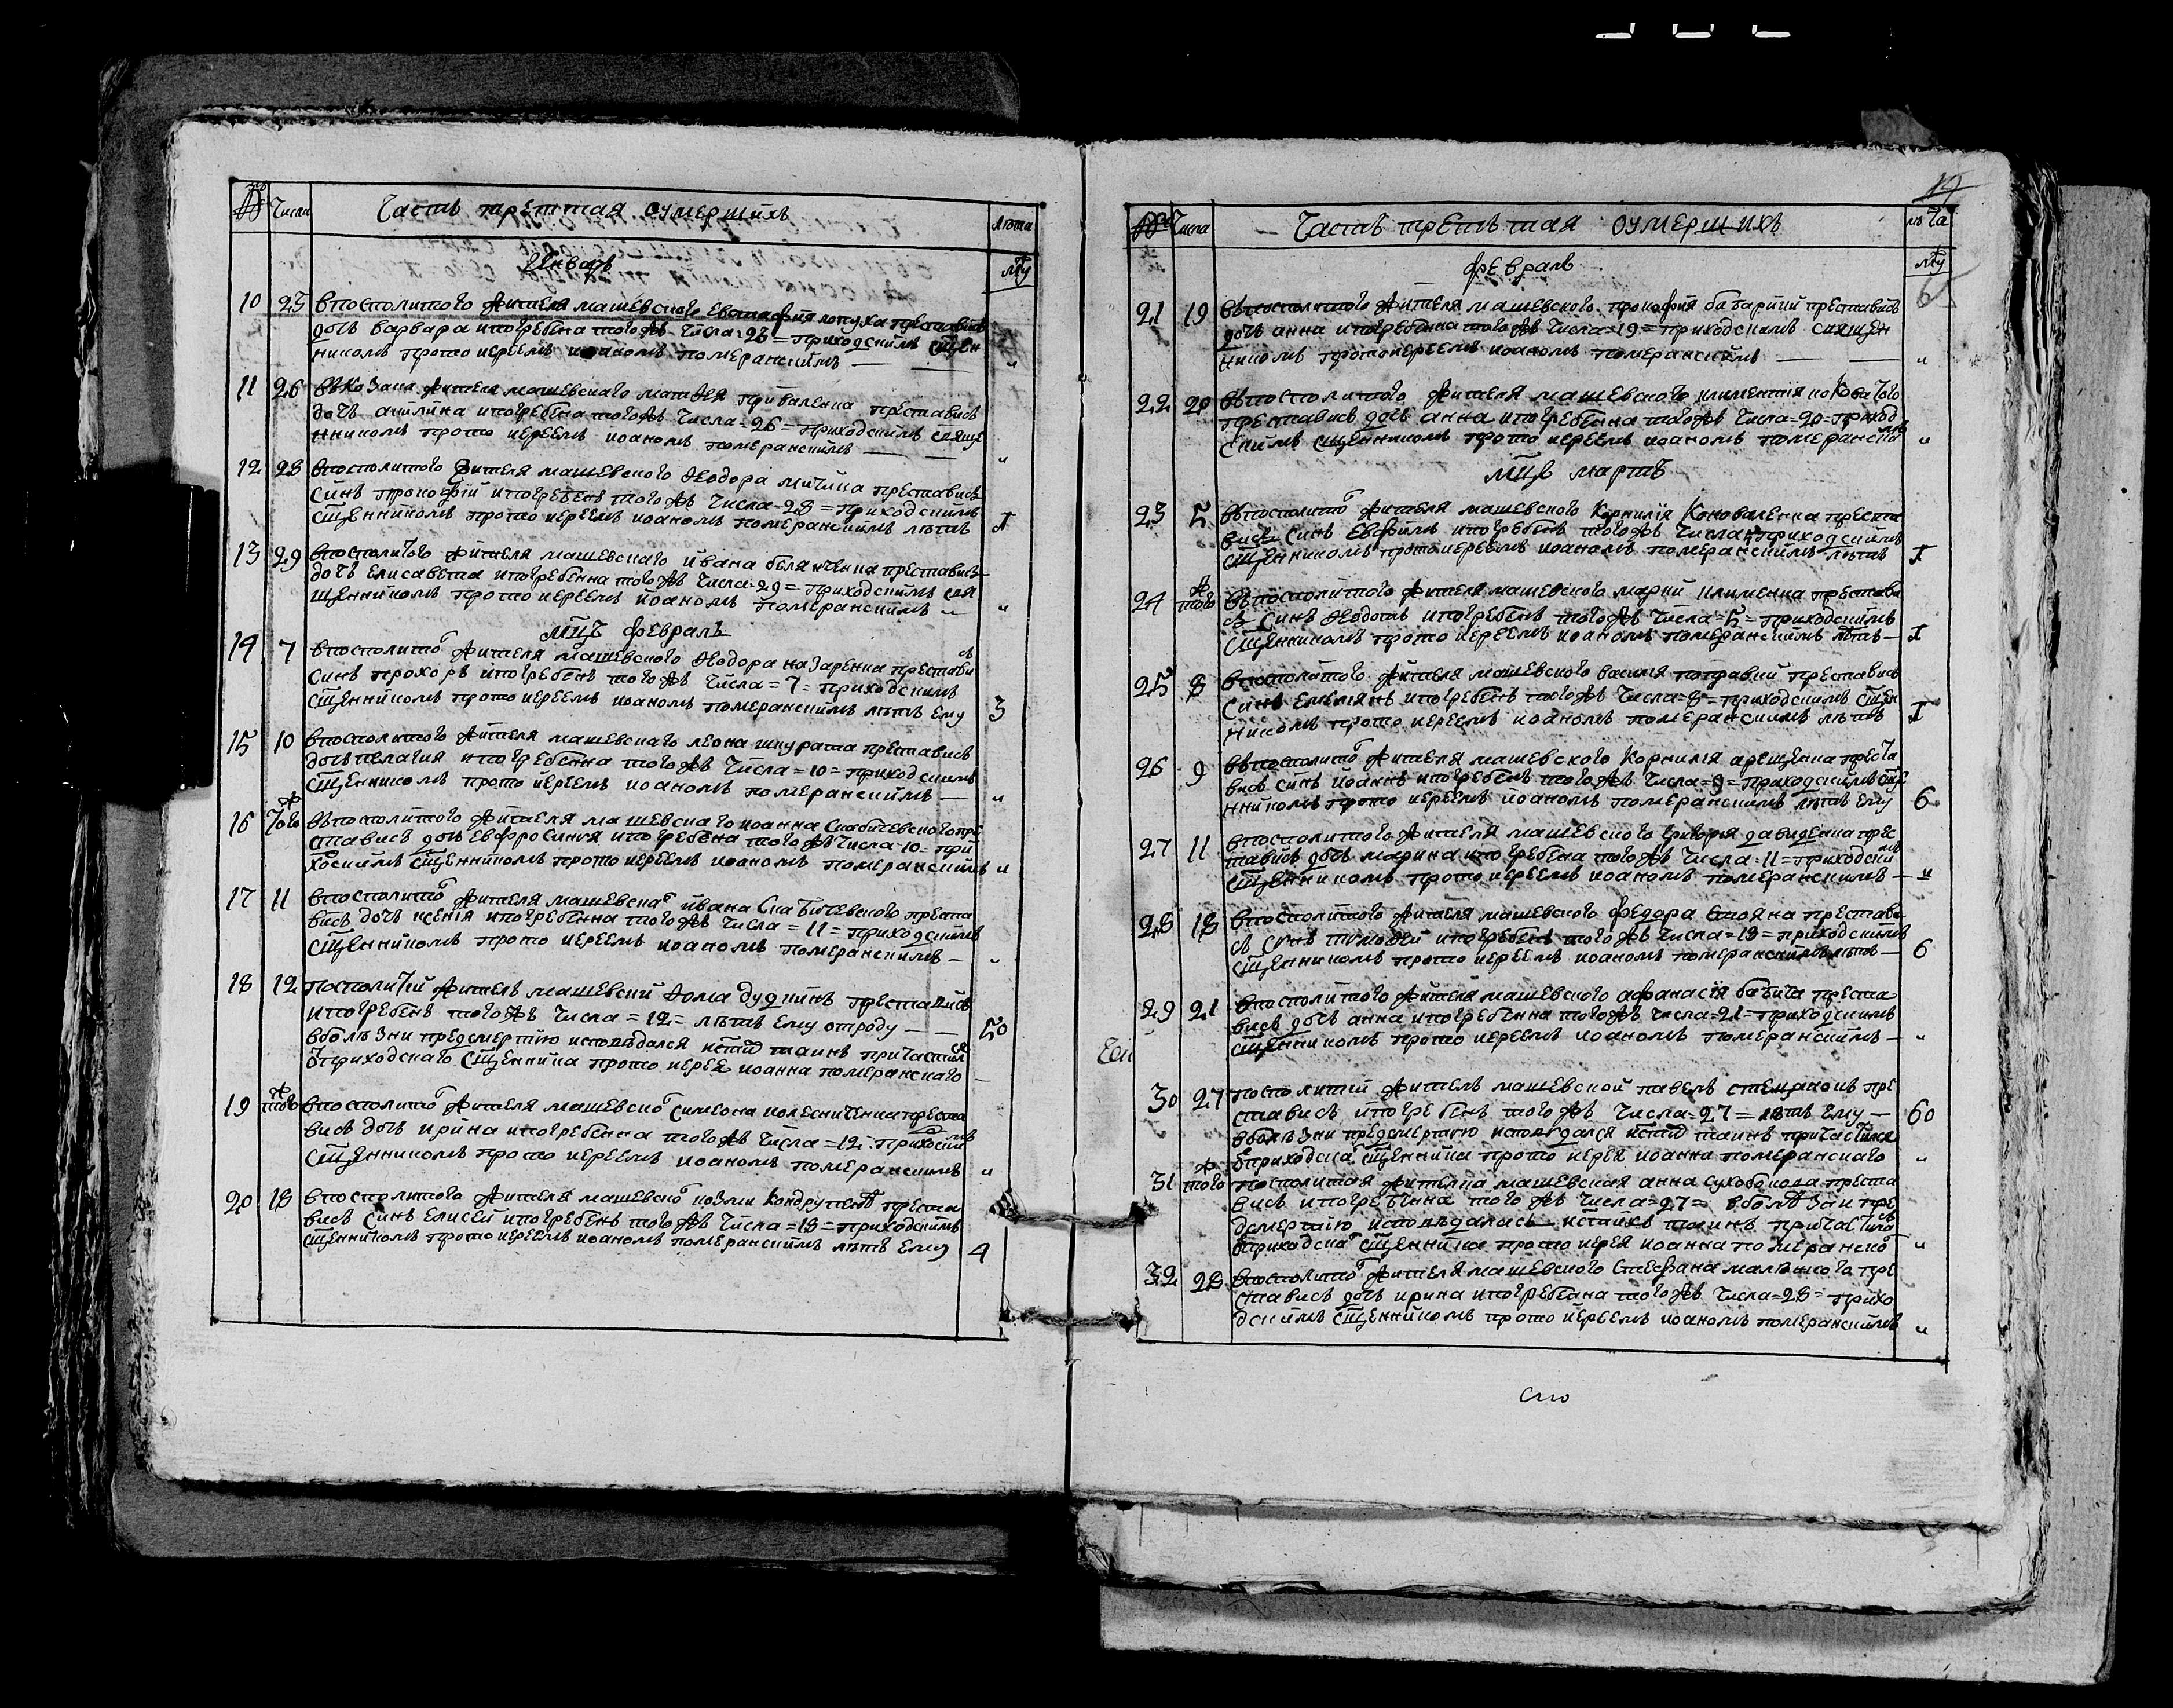 № Числа Часть третTая оумершихъ лѣта
Январь
10 23 в посполитого жителя машевского евстафия лопуха преставись
дочь варвара и погребена того жъ числа = 23 = приходскимъ сщен
никомъ прото иереемъ иоаномъ померанскимъ — — „
11 26 въ козака жителя машевского матθея приваленка преставись
дочь акилина и погребена того жъ числа = 26 = приходскимъ свяще
нникомъ прото иереемъ иоаномъ померанскимъ — — „
12 28 в посполитого жителя машевского θеодора мичика преставись
синъ прокофий и погребенъ того жъ числа = 28 = приходскимъ
сщенникомъ прото иереемъ иоаномъ померанскимъ лѣтъ 1
13 29 в посполитого жителя машевскаго ивана белянченка преставись
дочь елисавета и погребенна того жъ числа = 29 = приходскимъ свя
щенникомъ прото иереемъ иоаномъ померанскимъ „ „
мцъ февраль
14 7 в посполито жителя машевского θеодора назаренка престави сь
синъ прохоръ и погребенъ того жъ числа = 7 = приходскимъ
сщенникомъ прото иереемъ иоаномъ померанскимъ лѣтъ ему 3
15 10 в посполитого жителя машевскаго леона шкурата преставись
дочь пелагия и погребенна того жъ числа = 10 = приходскимъ
сщенникомъ прото иереемъ иоаномъ померанскимъ — „
16 того ж въ посполитого жителя машевскаго иоанна скабичевского пре
ставись дочь евфросиния и погребена того жъ числа = 10 = при
хоскимъ сщенникомъ прото иереемъ иоаномъ померанскимъ „
17 11 в посполито жителя машевска ивана скабичевского преста
вись дочь ксения и погребенна того жъ числа = 11 = приходскимъ
сщенникомъ прото иереемъ иоаномъ померанскимъ — „
18 12 посполитий житель машевский θома дудникъ преставись
и погребенъ того жъ числа = 12 = лѣтъ ему отроду — — 50
в болѣзни предсмертною исповѣдался и стих таинъ причастился
от приходскаго сщенника прото иерея иоанна померанскаго —
19 того ж в посполито жителя машевско симеона колесниченка преста
вись дочь ирина и погребенна того жъ числа = 12 = прихоскимъ
сщенникомъ прото иереемъ иоаномъ померанскимъ „
20 18 в посполитого жителя машевско козми кондрутенка преста
вись синъ елисей и погребенъ того жъ числа = 18 = приходскимъ
сщенникомъ прото иереемъ иоаномъ померанскимъ лѣтъ ему 4
19
№ Числа Часть третьтая оумершихъ лѣта
февраль
21 19 въ посполитого жителя машевского прокофия бабарики преставись
дочь анна и погребенна того жъ числа = 19 = приходскимъ священ
никомъ протоиереемъ иоаномъ померанскимъ — — „
22 20 въ посполитого жителя машевского климентия
преставись дочь анна и погребенна того жъ числа = 20 = приход
скимъ сщенникомъ прото иереемъ иоаномъ померанскимъ „
мцъ мартъ
23 5 въ посполито жителя машевского корнилия коноваленка преста
вись синъ евфимъ и погребенъ того жъ числа приходскимъ
сщенникомъ протоиереемъ иоаномъ померанскимъ лѣтъ 1
24 того ж въ посполитого жителя машевского марка клименка престави
сь синъ θеодотъ и погребенъ того жъ числа = 5 = приходскимъ
сщенникомъ прото иереемъ иоаномъ померанскимъ лѣтъ — 1
25 8 в посполитого жителя машевского василя поправки преставись
синъ емелиянъ и погребенъ того жъ числа = 8 = приходскимъ сщен
никомъ прото иереемъ иоаномъ померанскимъ лѣтъ 1
26 9 въ посполито жителя машевского корнилия арещенка преста
вись синъ иоаннъ и погребенъ того жъ числа = 9 = приходскимъ сще
нникомъ прото иереемъ иоаномъ померанскимъ лѣтъ ему 6
27 11 в посполитого жителя машевского григория давиденка прес
тавись дочь марина и погребена того жъ числа = 11 = приходскимъ
сщенникомъ прото иереемъ иоаномъ померанскимъ — „
28 18 в посполитого жителя машевского федора стояна престави
сь синъ тимоθей и погребенъ того жъ числа = 18 = приходскимъ
сщенникомъ прото иереемъ иоаномъ померанскимъ лѣтъ — 6
29 21 в посполитого жителя машевского афанасия бабича преста
вись дочь анна и погребенна того жъ числа = 21 = приходскимъ
сщенникомъ прото иереемъ иоаномъ померанскимъ — „
30 27 посполитий житель машевской павелъ пре
ставись и погребенъ того жъ числа = 27 = лѣтъ ему — 60
в болѣзни предсмертною исповѣдался и стих таинъ причастился
от приходска сщенника прото иерея иоанна померанскаго „
31 того ж посполитая жителка машевская анна сухобокова преста
вись и погребенна того жъ числа = 27 = в болѣзни пре
дсмертною исповѣдалась и стихъ таинъ причастила сь
от приходска сщенника прото иерея иоанна померанско „
32 28 в посполито жителя машевского стефана пре
ставись дочь ирина и погребенна того жъ числа = 28 = прихо
дскимъ сщенникомъ прото иереемъ иоаномъ померанскимъ „